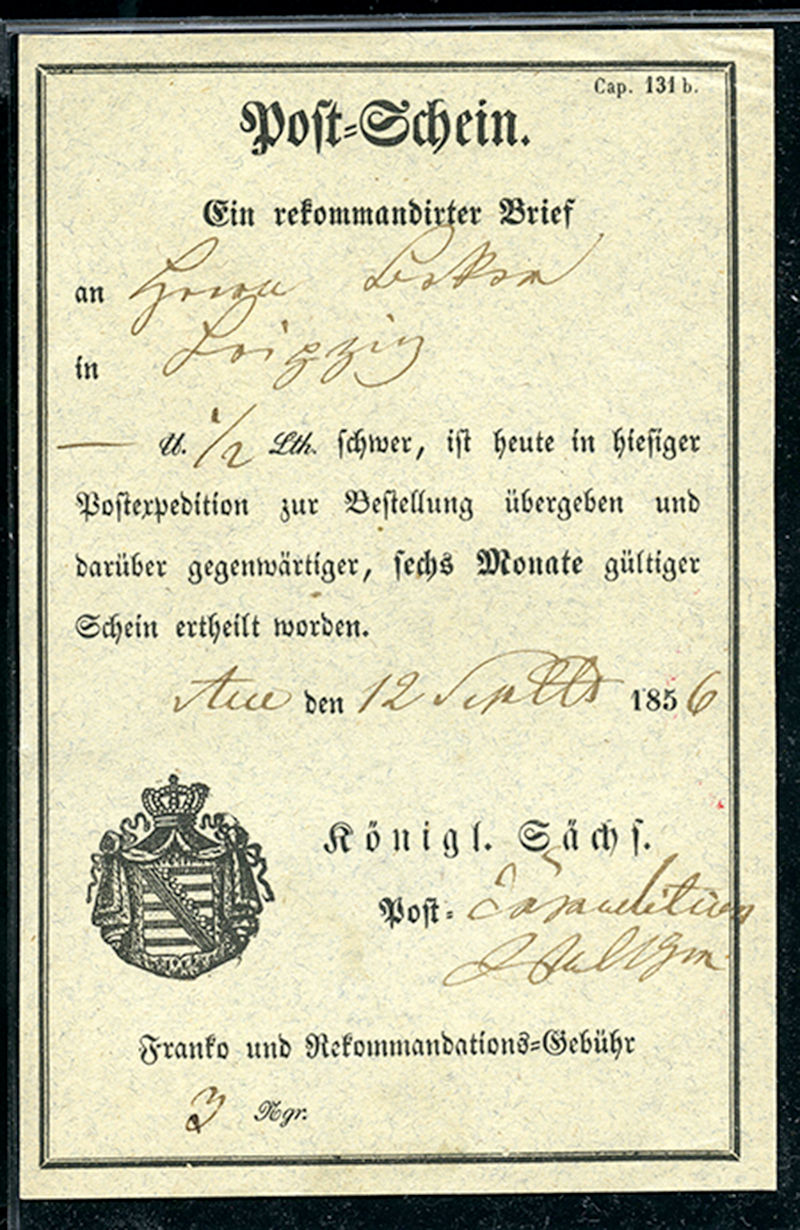 Cap. 131 b.
Post-Schein.
Ein rekommandirter Brief
an Herrn
in Leipzig
— U. 1/2 Lth. schwer, ist heute in hiesiger
Postexpedition zur Bestellung übergeben und
darüber gegenwärtiger, sechs Monate gültiger
Schein ertheilt worden.
Aue den 12 Septbr 1856
Königl. Sächs.
Post-
Franko und Rekommandations-Gebühr
3 Ngr.